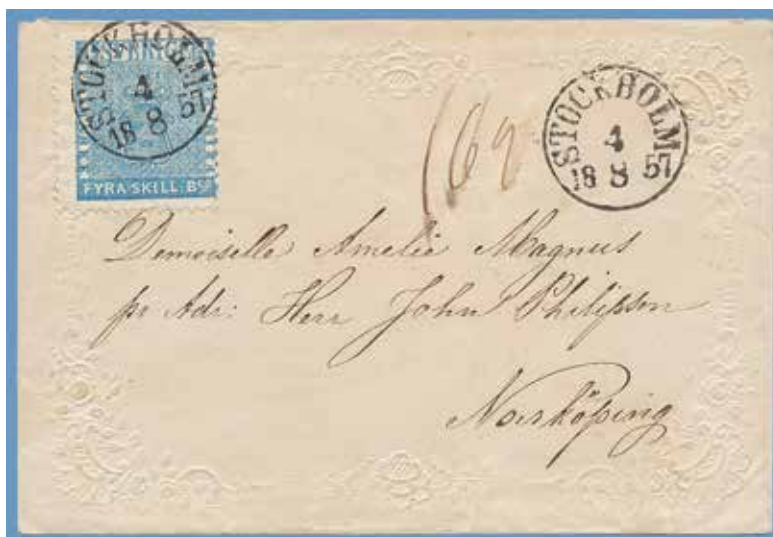 SVERIGE
STOCKHOLM
4
18 8 57
FYRA SKILL. Bco
162
STOCKHOLM
4
18 8 57
Demoiselle Amelie Magnus
pr Adr: Herr John Philipson
Norrköping